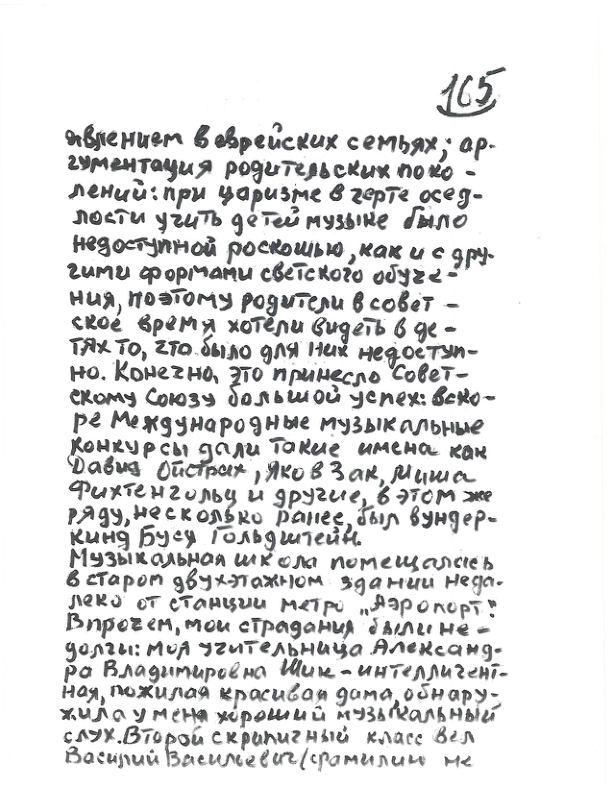 165
явлением в еврейских семьях; ар-
гументация родительских поко-
лений: при царизме в черте осед-
лости учить детей музыке было
недоступной роскошью, как и с дру-
гими формами светского обуче-
ния, поэтому родители в совет-
ское время хотели видеть в де-
тях то, что было для них недоступ-
но. Конечно, это принесло Совет-
скому Союзу большой успех: вско-
ре Международные музыкальные
конкурсы дали такие имена как
Давид Ойстрах, Яков Зак, Миша
Фихтенгольц и другие, в этом же
ряду, несколько ранее, был вундер-
кинд Буся Гольдштейн.
Музыкальная школа помещалась
в старом двухэтажном здании неда-
леко от станции метро „Аэропорт".
Впрочем, мои страдания были не-
долги: моя учительница Александ-
ра Владимировна Шик - интеллигент-
ная, пожилая красивая дама, обнару-
жила у меня хороший музыкальный
слух. Второй скрипичный класс вел
Василий Васильевич (фамилию не